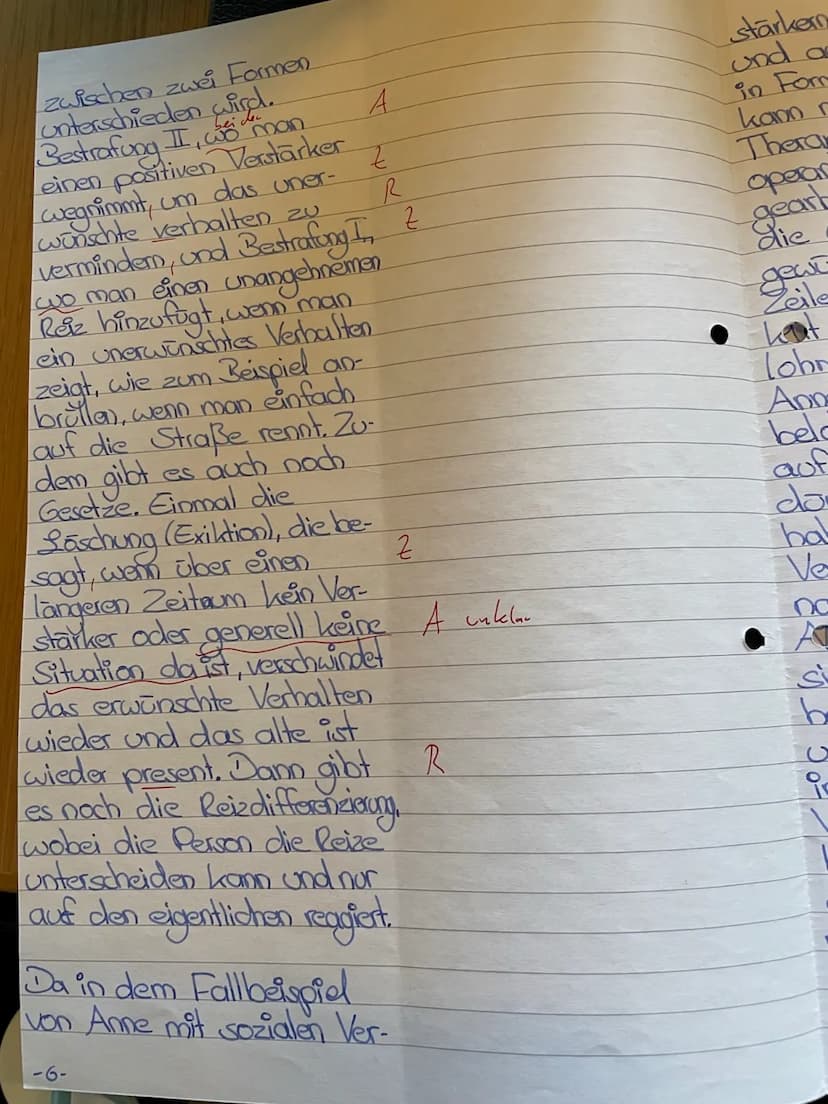 zwischen zwei Formen
unterschieden wird.
bei der
A
Bestrafung II, wo man
einen positiven Verstärker
Z
wegnimmt, um das uner-
R
wünschte verhalten zu
Z
vermindern, und Bestrafung I,
wo man einen unangehnemen
Reiz hinzufügt, wenn man
ein unerwünschtes Verhalten
zeigt, wie zum Beispiel an-
brüllen, wenn man einfach
auf die Straße rennt. Zu-
dem gibt es auch noch
Gesetze. Einmal die
Löschung (Exiktion), die be-
sagt, wenn über einen
Z
längeren Zeitraum kein Ver-
stärker oder generell keine
A unklar
Situation da ist, verschwindet
das erwünschte Verhalten
wieder und das alte ist
wieder present. Dann gibt
R
es noch die Reizdifferenzierung,
wobei die Person die Reize
unterscheiden kann und nur
auf den eigentlichen reggiert.
Da in dem Fallbeispiel
von Anne mit sozialen Ver-
-6-
stärkern
und
in
kann
opera
die
Zeile
Anne
auf